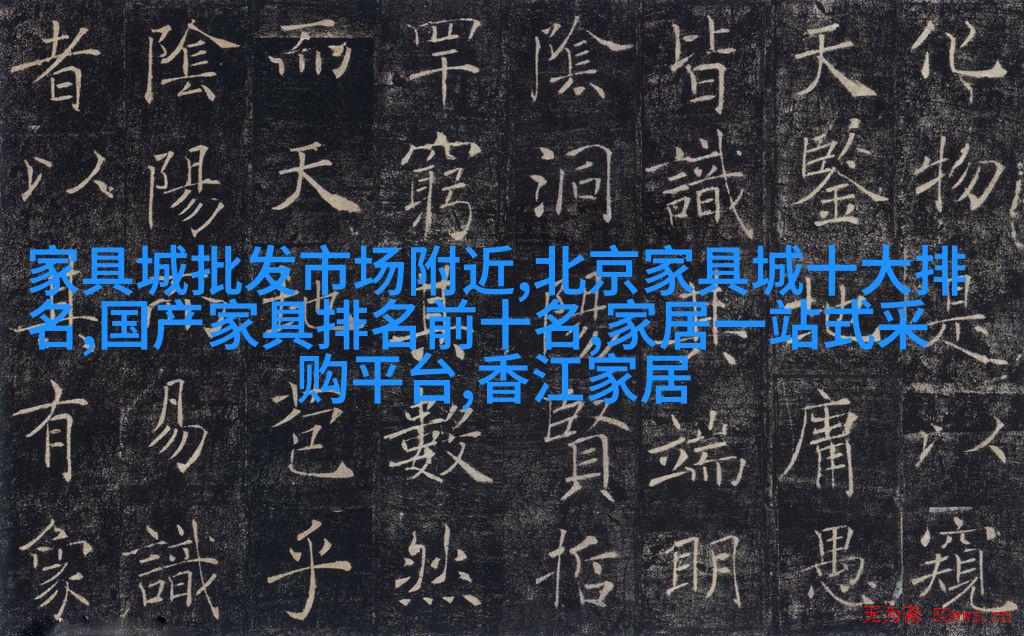 家具城批发市场附近,北京家具城十大排
名,国产家具排名前十名,家居一站式采
购平台,香江家居
化物是以窺
天鑒地庸愚
皆識其端明
陰洞陽賢哲
罕窮其數然
而天地苞乎
陰陽易識
者以其有象
无为斋 52wwz.cn